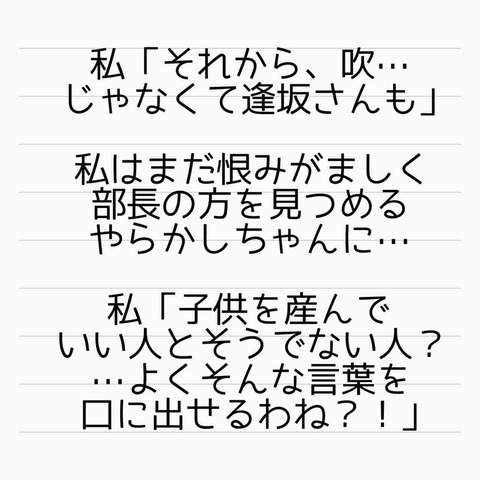 私「それから、吹…
じゃなくて逢坂さんも」
私はまだ恨みがましく
部長の方を見つめる
やらかしちゃんに…
私「子供を産んで
いい人とそうでない人？
…よくそんな言葉を
口に出せるわね？！」